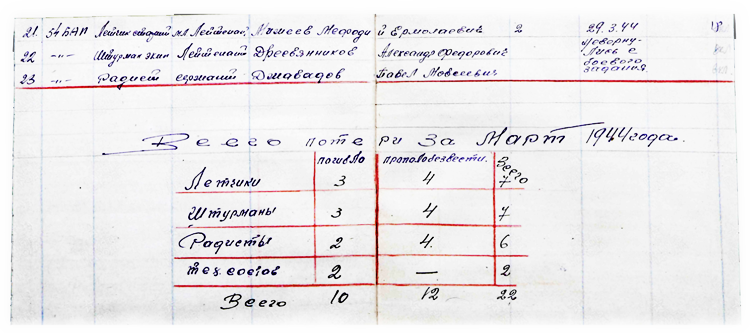 21. 54 БАП Летчик старший мл Лейтенант Мамеев Мефодий Ермолаевич 2 29.3.44
22 -"- Штурман экип Лейтенант Древянников Александр Федорович Невернулись с
23 -"- Радист сержант Джавадов Павел Мовсеевич боевого задания
Всего потери за Март 1944 года.
погибло пропало безвести. Всего
Летчики 3 4 7
Штурманы 3 4 7
Радисты 2 4. 6
тех. состав 2 — 2
Всего 10 12 22